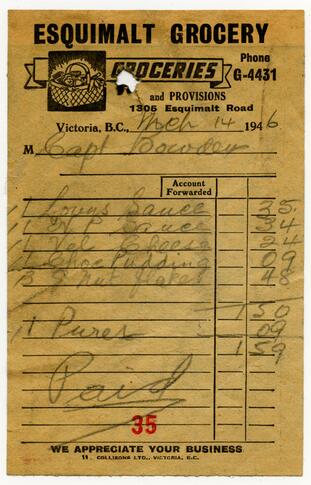 ESQUIMALT GROCERY
GROCERIES
Phone
G-4431
and PROVISIONS
1306 Esquimalt Road
Victoria, B.C., Mch 14 1946
M Capt Bowden
Account
Forwarded
1 Sauce 35
1 H P Sauce 34
1 Vel Cheese 24
1 Choc Pudding 09
3 G Nut flakes 48
1 50
1 Purex 09
1 59
Paid
35
WE APPRECIATE YOUR BUSINESS
COLLISONS LTD., VICTORIA, B.C.